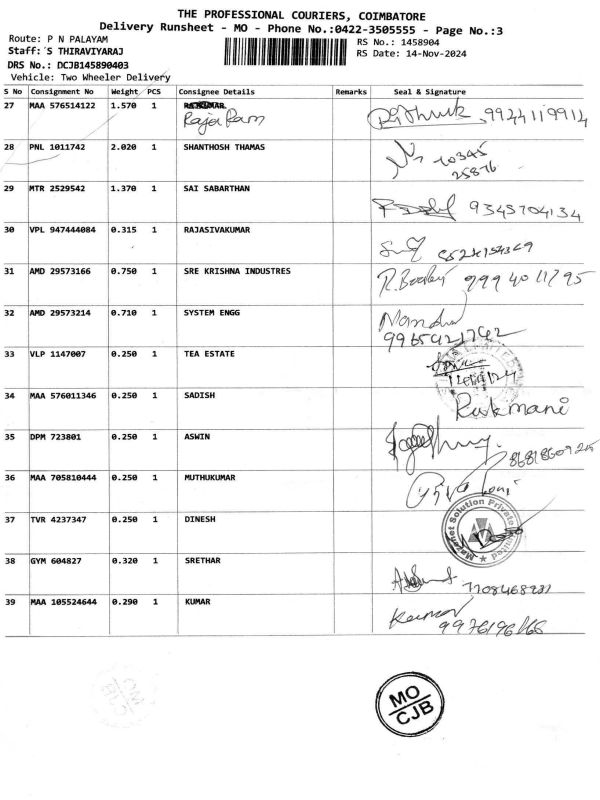 THE PROFESSIONAL COURIERS, COIMBATORE
Delivery Runsheet - MO - Phone No.:0422-3505555 - Page No.:3
Route: P N PALAYAM
Staff: S THIRAVIYARAJ
DRS No.: DCJB145890403
Vehicle: Two Wheeler Delivery
RS No.: 1458904
RS Date: 14-Nov-2024
S No Consignment No Weight PCS Consignee Details Remarks Seal & Signature
27 MAA 576514122 1.570 1
RajaRam
28 PNL 1011742 2.020 1 SHANTHOSH THAMAS
29 MTR 2529542 1.370 1 SAI SABARTHAN 9345704134
30 VPL 947444084 0.315 1 RAJASIVAKUMAR
31 AMD 29573166 0.750 1 SRE KRISHNA INDUSTRES
32 AMD 29573214 0.710 1 SYSTEM ENGG
33 VLP 1147007 0.250 1 TEA ESTATE
34 MAA 576011346 0.250 1 SADISH Rukmani
35 DPM 723801 0.250 1 ASWIN
36 MAA 705810444 0.250 1 MUTHUKUMAR
37 TVR 4237347 0.250 1 DINESH
Solution Private
38 GYM 604827 0.320 1 SRETHAR
39 MAA 105524644 0.290 1 KUMAR Kumar
MO
CJB